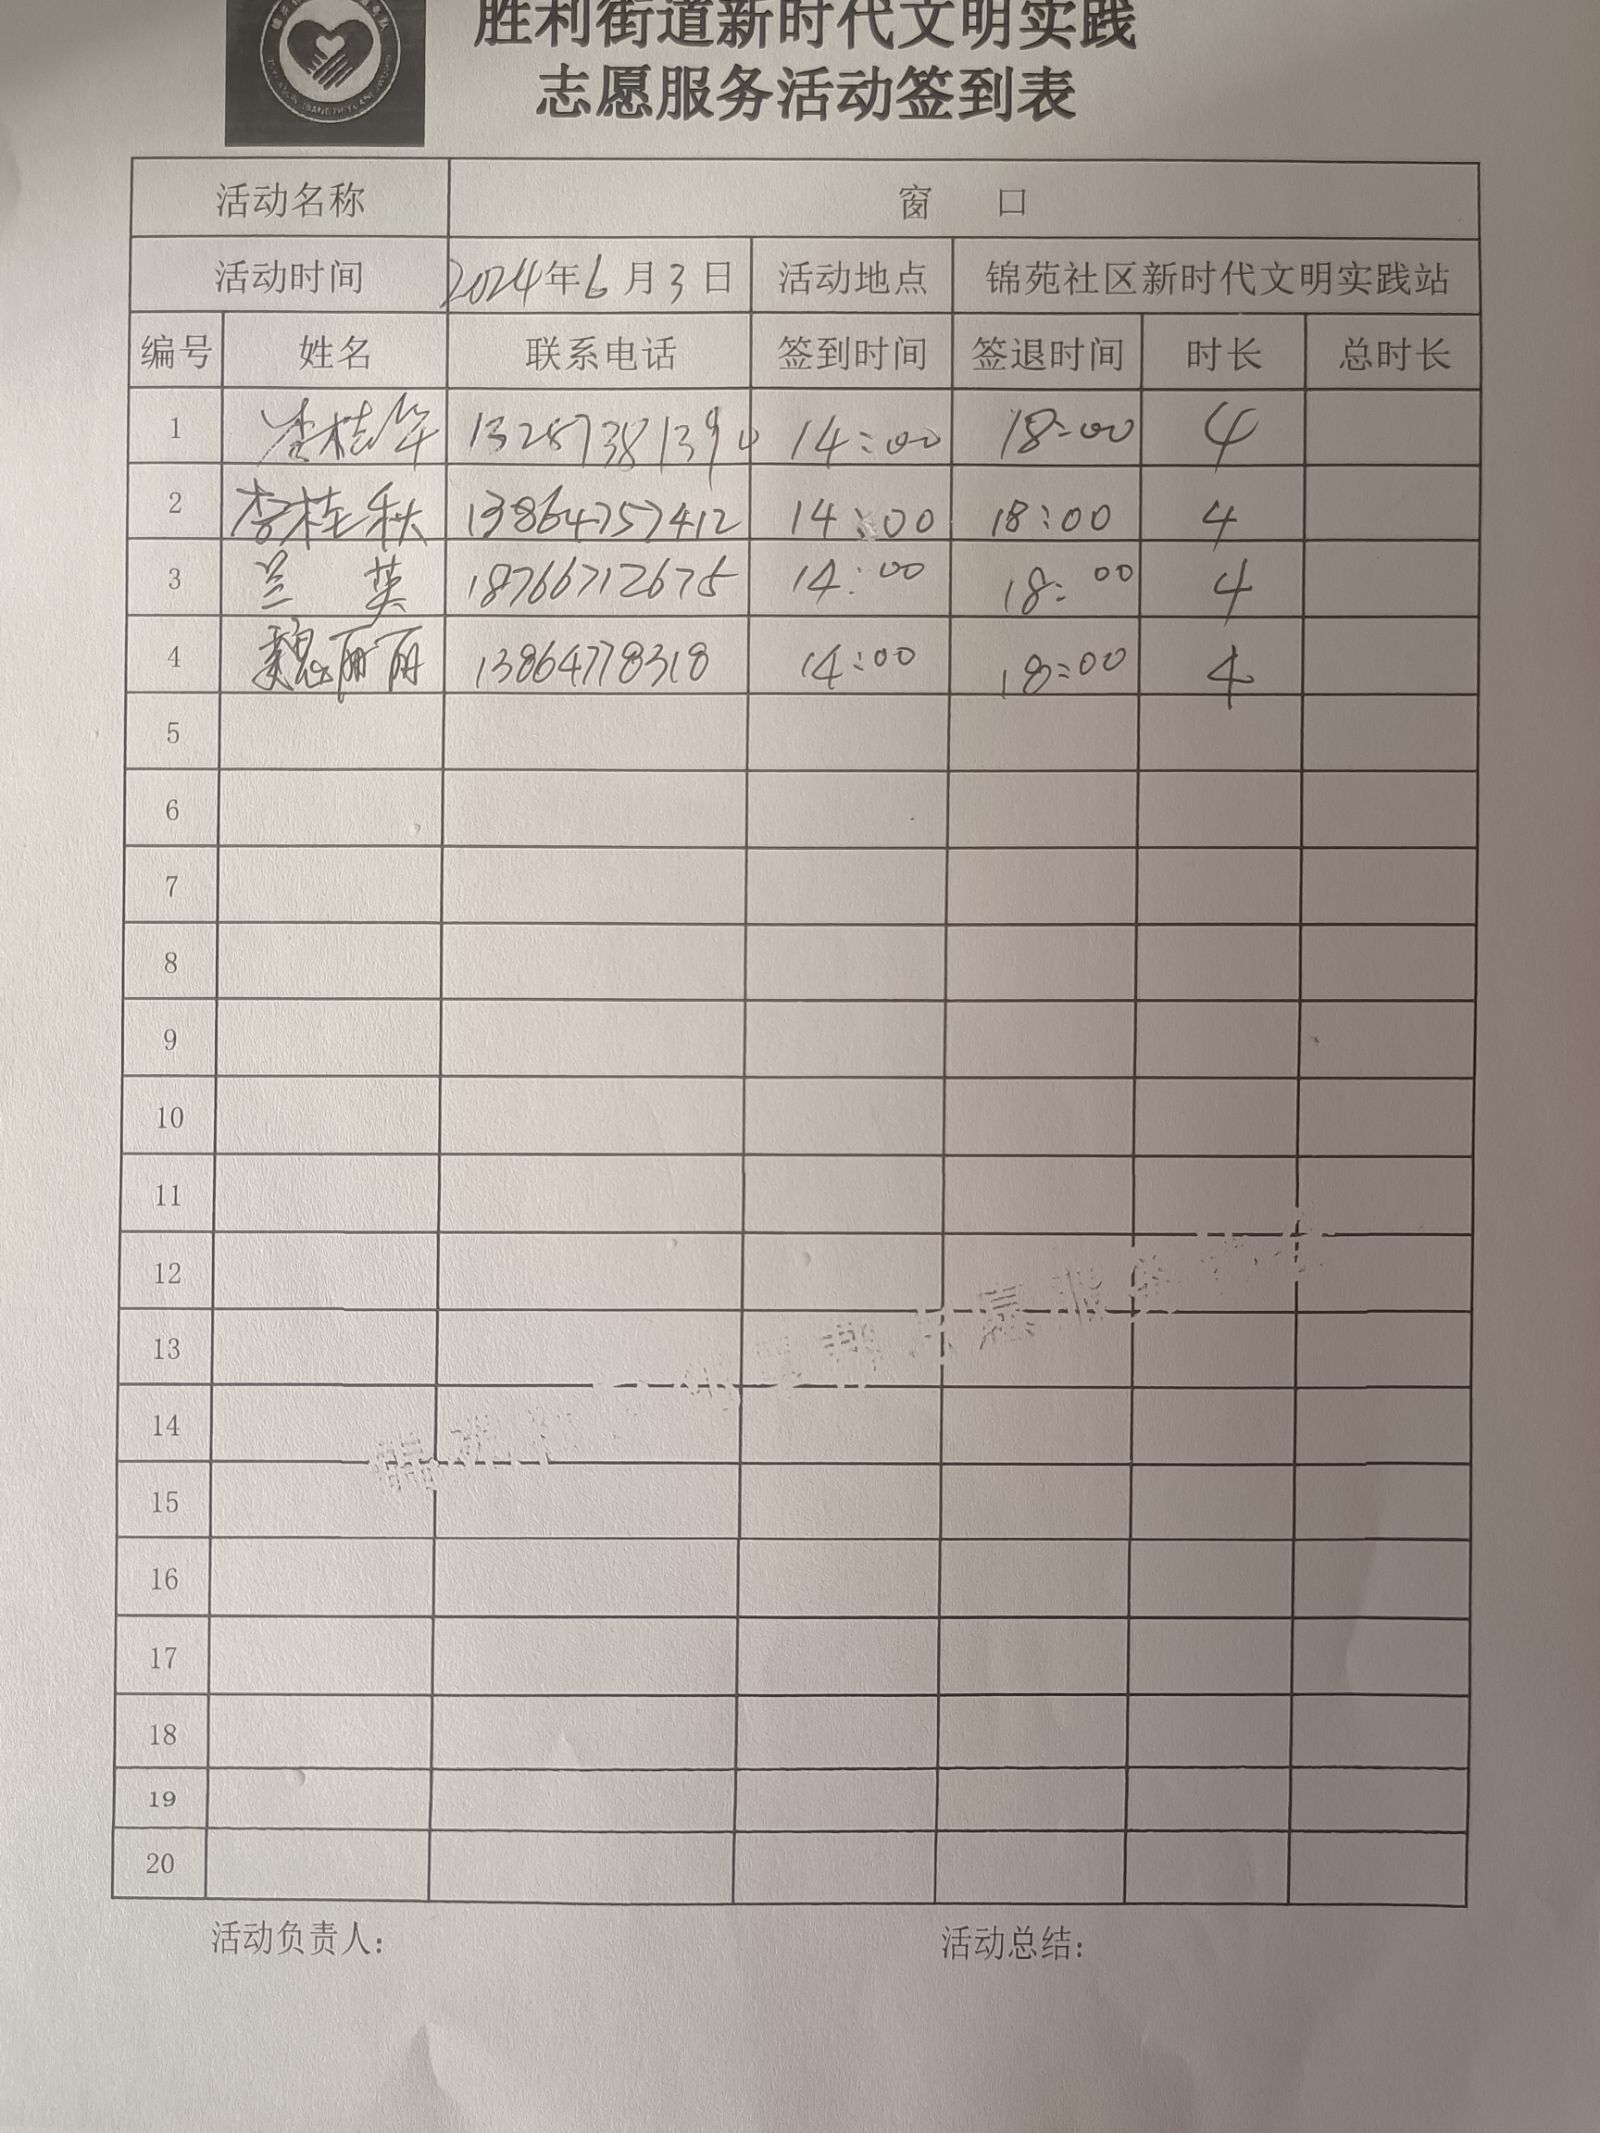 胜利街道新时代文明实践
志愿服务活动签到表
活动名称 窗 口
活动时间 2024年6月3日 活动地点 锦苑社区新时代文明实践站
编号 姓名 联系电话 签到时间 签退时间 时长 总时长
1 桂华 1328738139 14:00 18:00 4
2 李桂秋 13864757412 14:00 18:00 4
3 兰 英 18766712675 14:00 18:00 4
4 魏丽丽 13864778318 14:00 18:00 4
5
6
7
8
9
10
11
12
13
14
15
16
17
18
19
20
活动负责人: 活动总结: